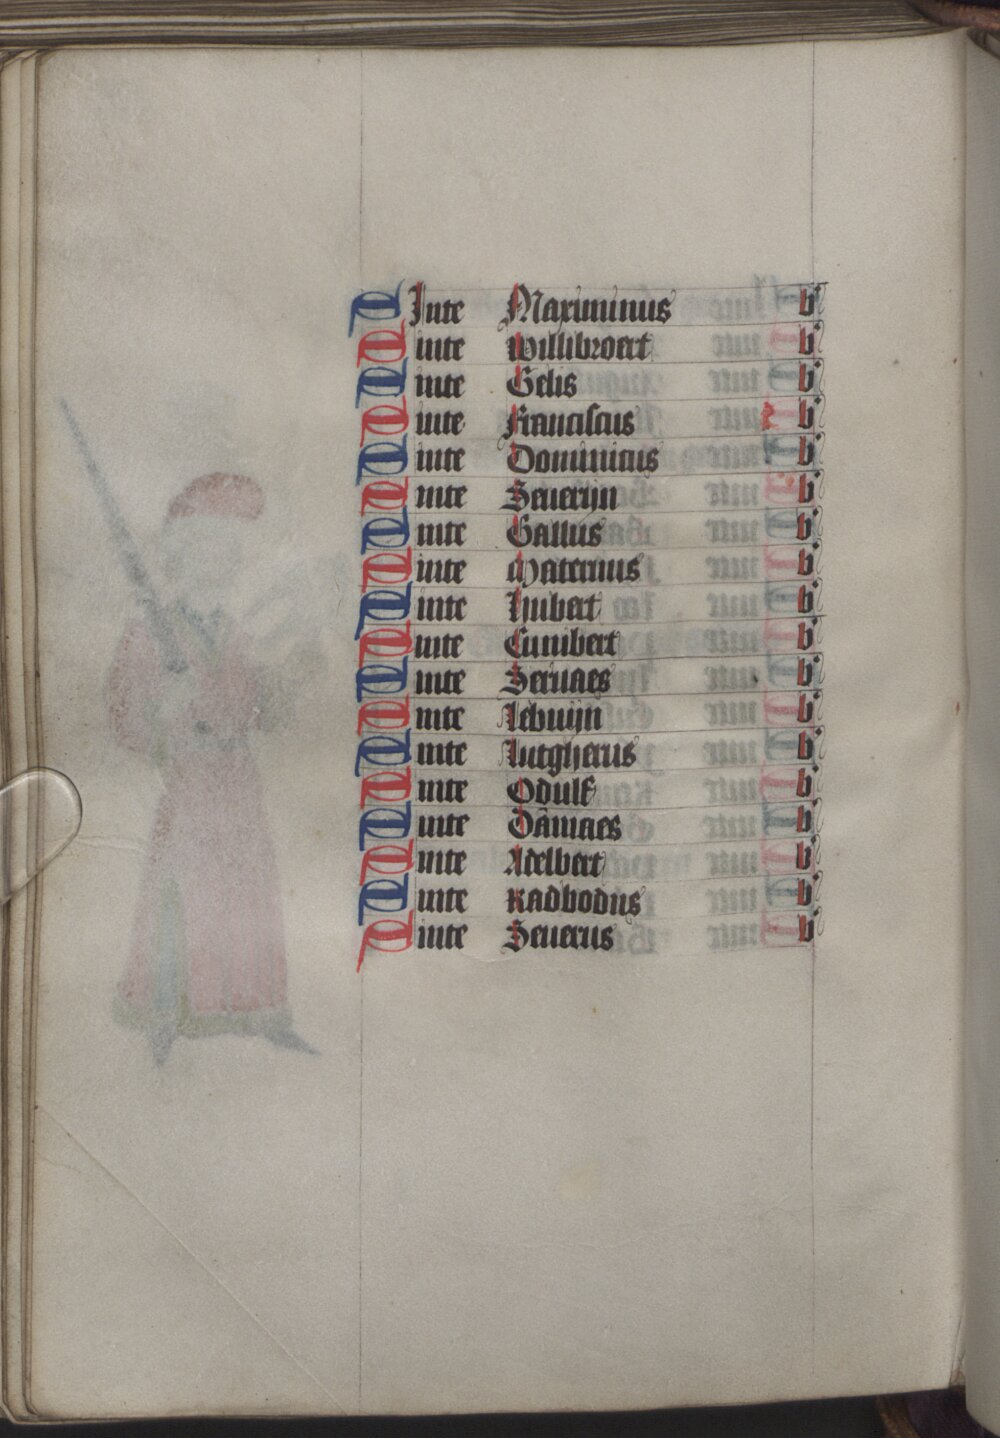 SInte Maximinus b
Sinte willibroert b
Sinte Gelis b
Sinte franciscus b
Sinte Dominicus b
Sinte Seuerijn b
Sinte Gallus b
Sinte Maternus b
Sinte Hubert b
Sinte Cunibert b
Sinte Seruaes b
Sinte lebuijn b
Sinte lutgherus b
Sinte Odulf b
Sinte Damaes b
Sinte Adelbert b
Sinte Radbodus b
Sinte Seuerus b